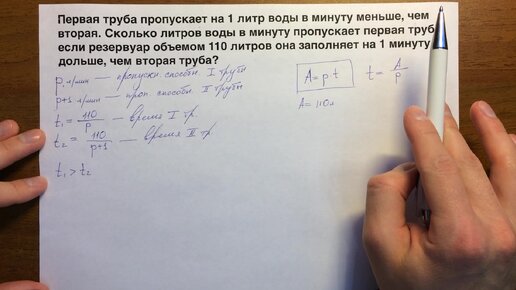 Первая труба пропускает на 1 литр воды в минуту меньше, чем
вторая. Сколько литров воды в минуту пропускает первая труб
если резервуар объемом 110 литров она заполняет на 1 минуту
дольше, чем вторая труба?
p л/мин — пропускн. способн. I трубы
p+1 л/мин — проп. способн. II трубы
t₁ = 110/p — время I тр.
t₂ = 110/p+1 — время II тр.
t₁ > t₂
A = p t
t = A/p
A = 110л